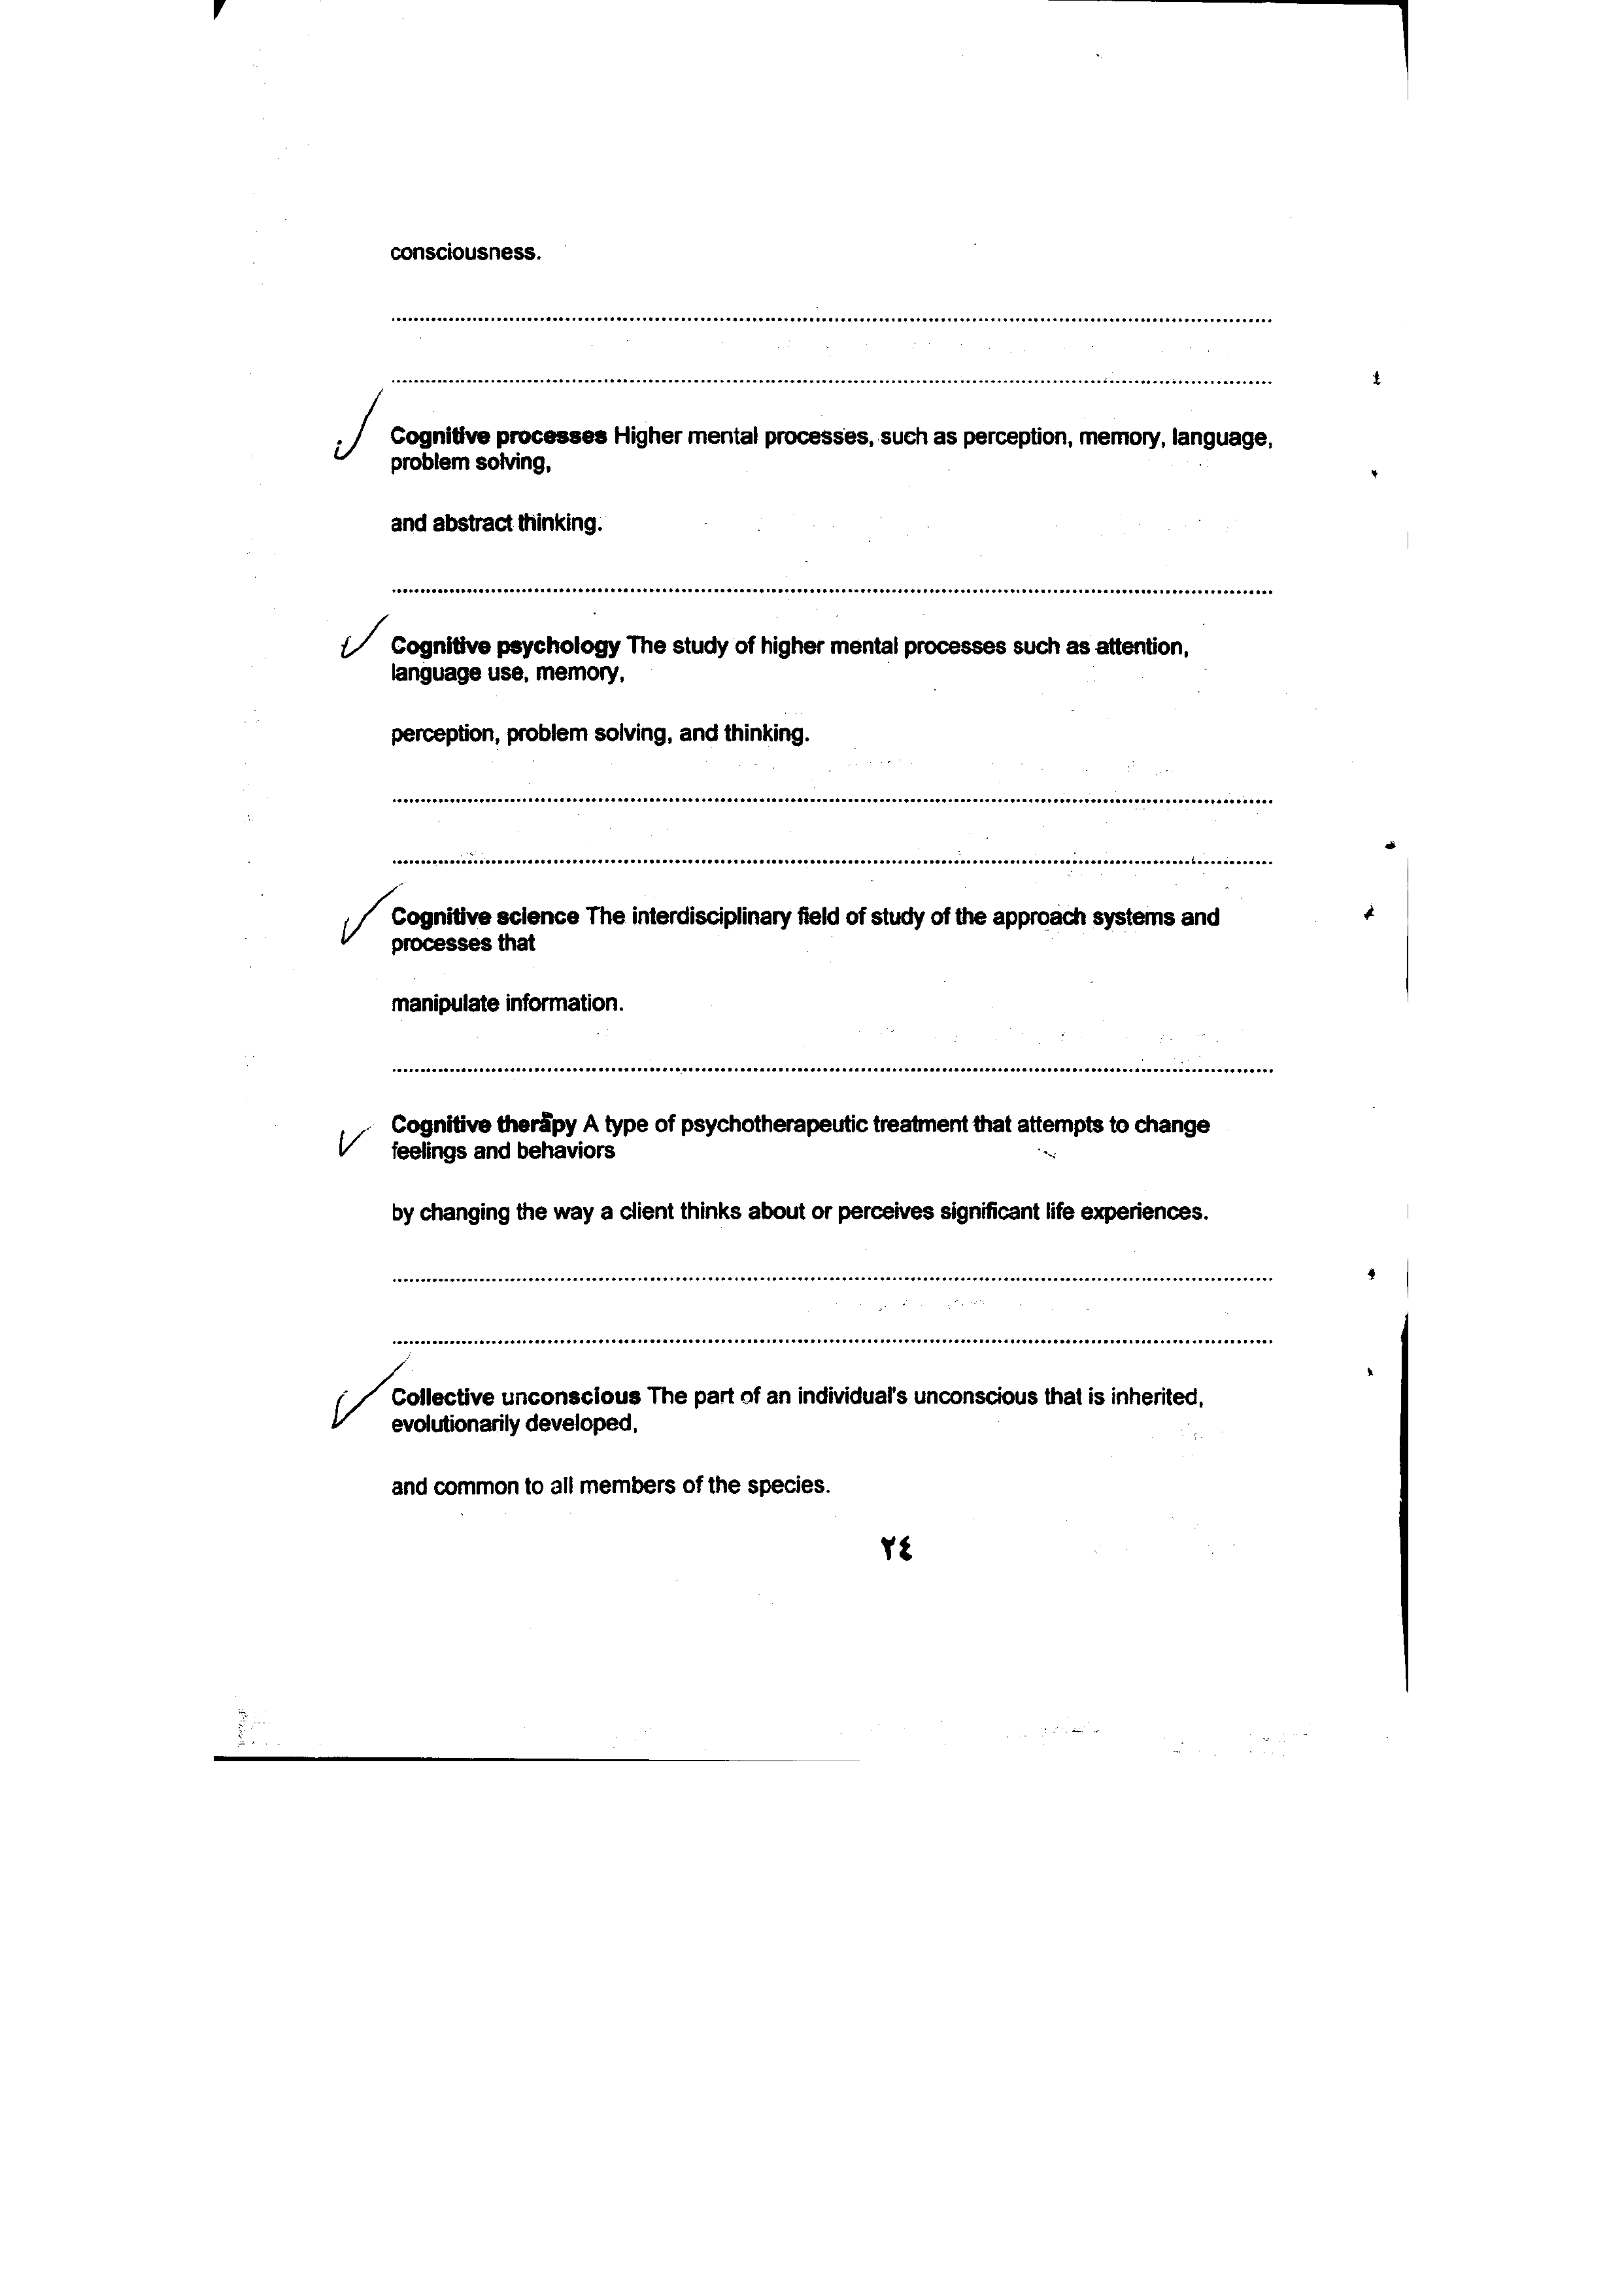 consciousness.
Cognitive processes Higher mental processes, such as perception, memory, language,
problem solving,
and abstract thinking.
Cognitive psychology The study of higher mental processes such as attention,
language use, memory,
perception, problem solving, and thinking.
Cognitive science The interdisciplinary field of study of the approach systems and
processes that
manipulate information.
Cognitive therapy A type of psychotherapeutic treatment that attempts to change
feelings and behaviors
by changing the way a client thinks about or perceives significant life experiences.
Collective unconscious The part of an individual's unconscious that is inherited,
evolutionarily developed,
and common to all members of the species.
٢٤